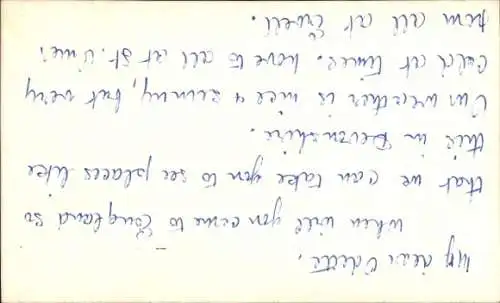 My dear Odette,
when will you come to England so
that we can take you to see places like
this in Devonshire.
Our weather is nice & sunny, but very
cold at times. Love to all at St.
from all at